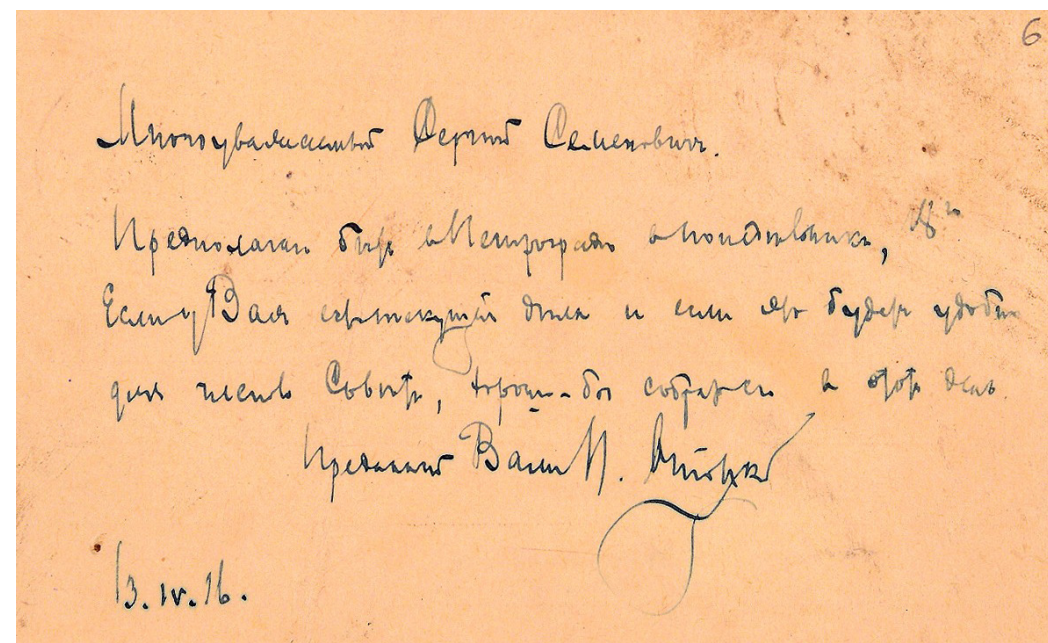 6
Многоуважаемый Сергей Семенович.
Предполагаю быть в Петрограде в понедельник, 18го
Если у Вас есть текущие дела и если это будет удобно
для членов Совета, хорошо-бы собраться в этот день.
Преданный Вам П.
13.IV.16.